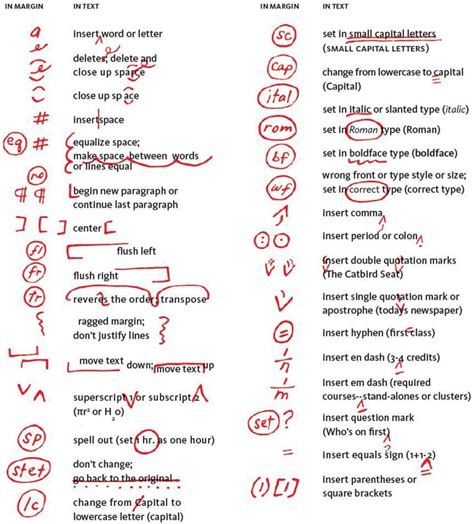 IN MARGIN IN TEXT
a insert word or letter
deletes; delete and
close up sparce
close up sp ace
# insertspace
eq # equalize space;
make space between words
or lines equal
no
¶ ¶ begin new paragraph or
continue last paragraph
] [ center
fl flush left
fr flush right
tr reveres the order; transpose
ragged margin;
don't justify lines
move text down; move text up
superscript 1 or subscript 2
(πr² or H₂0)
sp spell out (set 1 hr. as one hour)
stet don't change;
go back to the original
lc change from Capital to
lowercase letter (capital)
IN MARGIN IN TEXT
sc set in small capital letters
(SMALL CAPITAL LETTERS)
cap change from lowercase to capital
(Capital)
ital set in italic or slanted type (italic)
rom set in Roman type (Roman)
bf set in boldface type (boldface)
wf wrong front or type style or size;
set in correct type (correct type)
insert comma
insert period or colon
insert double quotation marks
(The Catbird Seat)
insert single quotation mark or
apostrophe (todays newspaper)
= insert hyphen (first class)
1/n insert en dash (3-4 credits)
1/m insert em dash (required
courses--stand-alones or clusters)
set ? insert question mark
(Who's on first)
= insert equals sign (1+1-2)
( ) [ ] insert parentheses or
square brackets